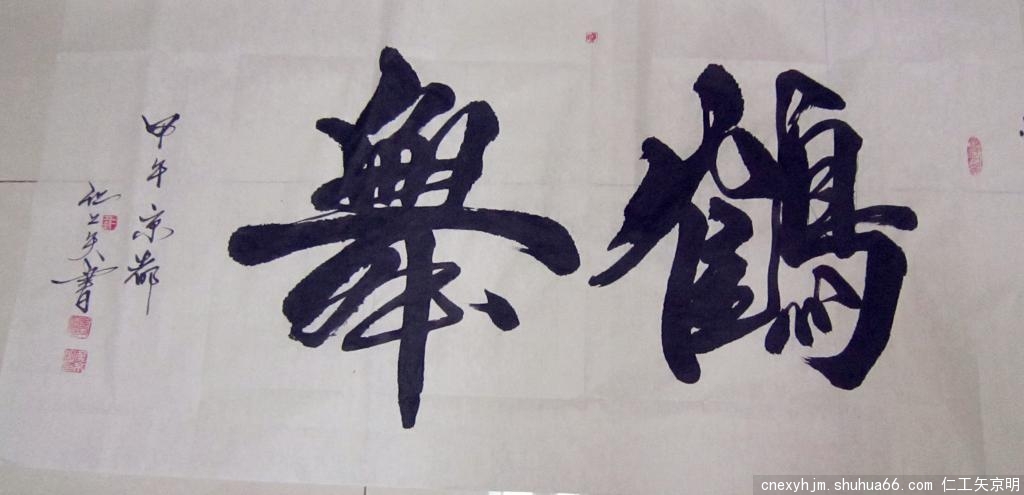 鶴舞
甲午京都
仁工矢書
cnexyhjm.shuhua66.com 仁工矢京明